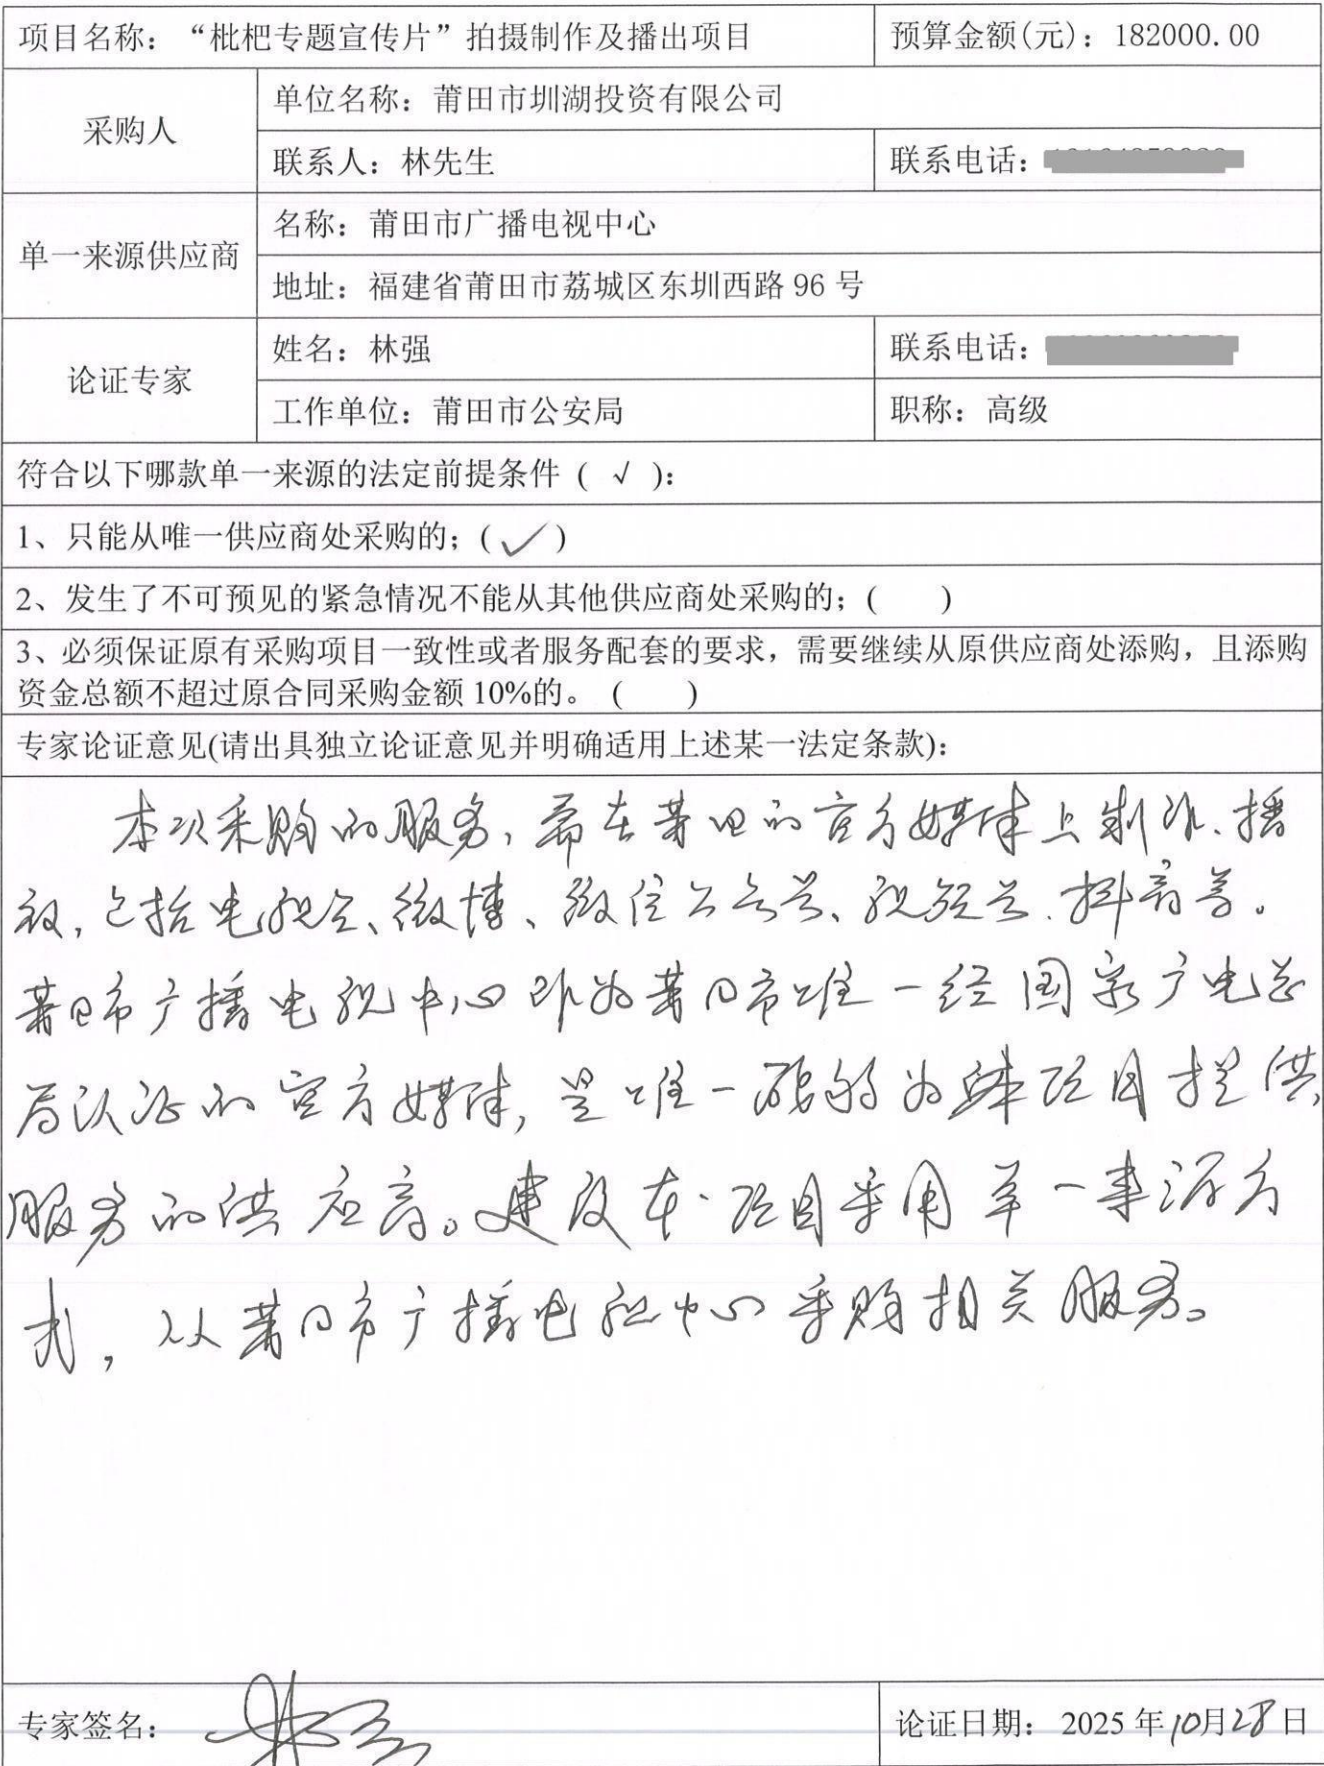 项目名称：“枇杷专题宣传片”拍摄制作及播出项目
预算金额(元)：182000.00
采购人
单位名称：莆田市圳湖投资有限公司
联系人：林先生
联系电话：
单一来源供应商
名称：莆田市广播电视中心
地址：福建省莆田市荔城区东圳西路 96 号
论证专家
姓名：林强
联系电话：
工作单位：莆田市公安局
职称：高级
符合以下哪款单一来源的法定前提条件 ( √ )：
1、只能从唯一供应商处采购的；(✓)
2、发生了不可预见的紧急情况不能从其他供应商处采购的；( )
3、必须保证原有采购项目一致性或者服务配套的要求，需要继续从原供应商处添购，且添购
资金总额不超过原合同采购金额 10%的。 ( )
专家论证意见(请出具独立论证意见并明确适用上述某一法定条款)：
本次采购的服务，需在莆田的官方媒体上制作、播
放，包括电视台、微博、微信公众号、视频号、抖音等。
莆田市广播电视中心即为莆田市唯一经国家广电总
局认证的官方媒体，是唯一能够为本项目提供
服务的供应商。建议本项目采用单一来源方
式，从莆田市广播电视中心采购相关服务。
专家签名：
林强
论证日期： 2025 年10月28日